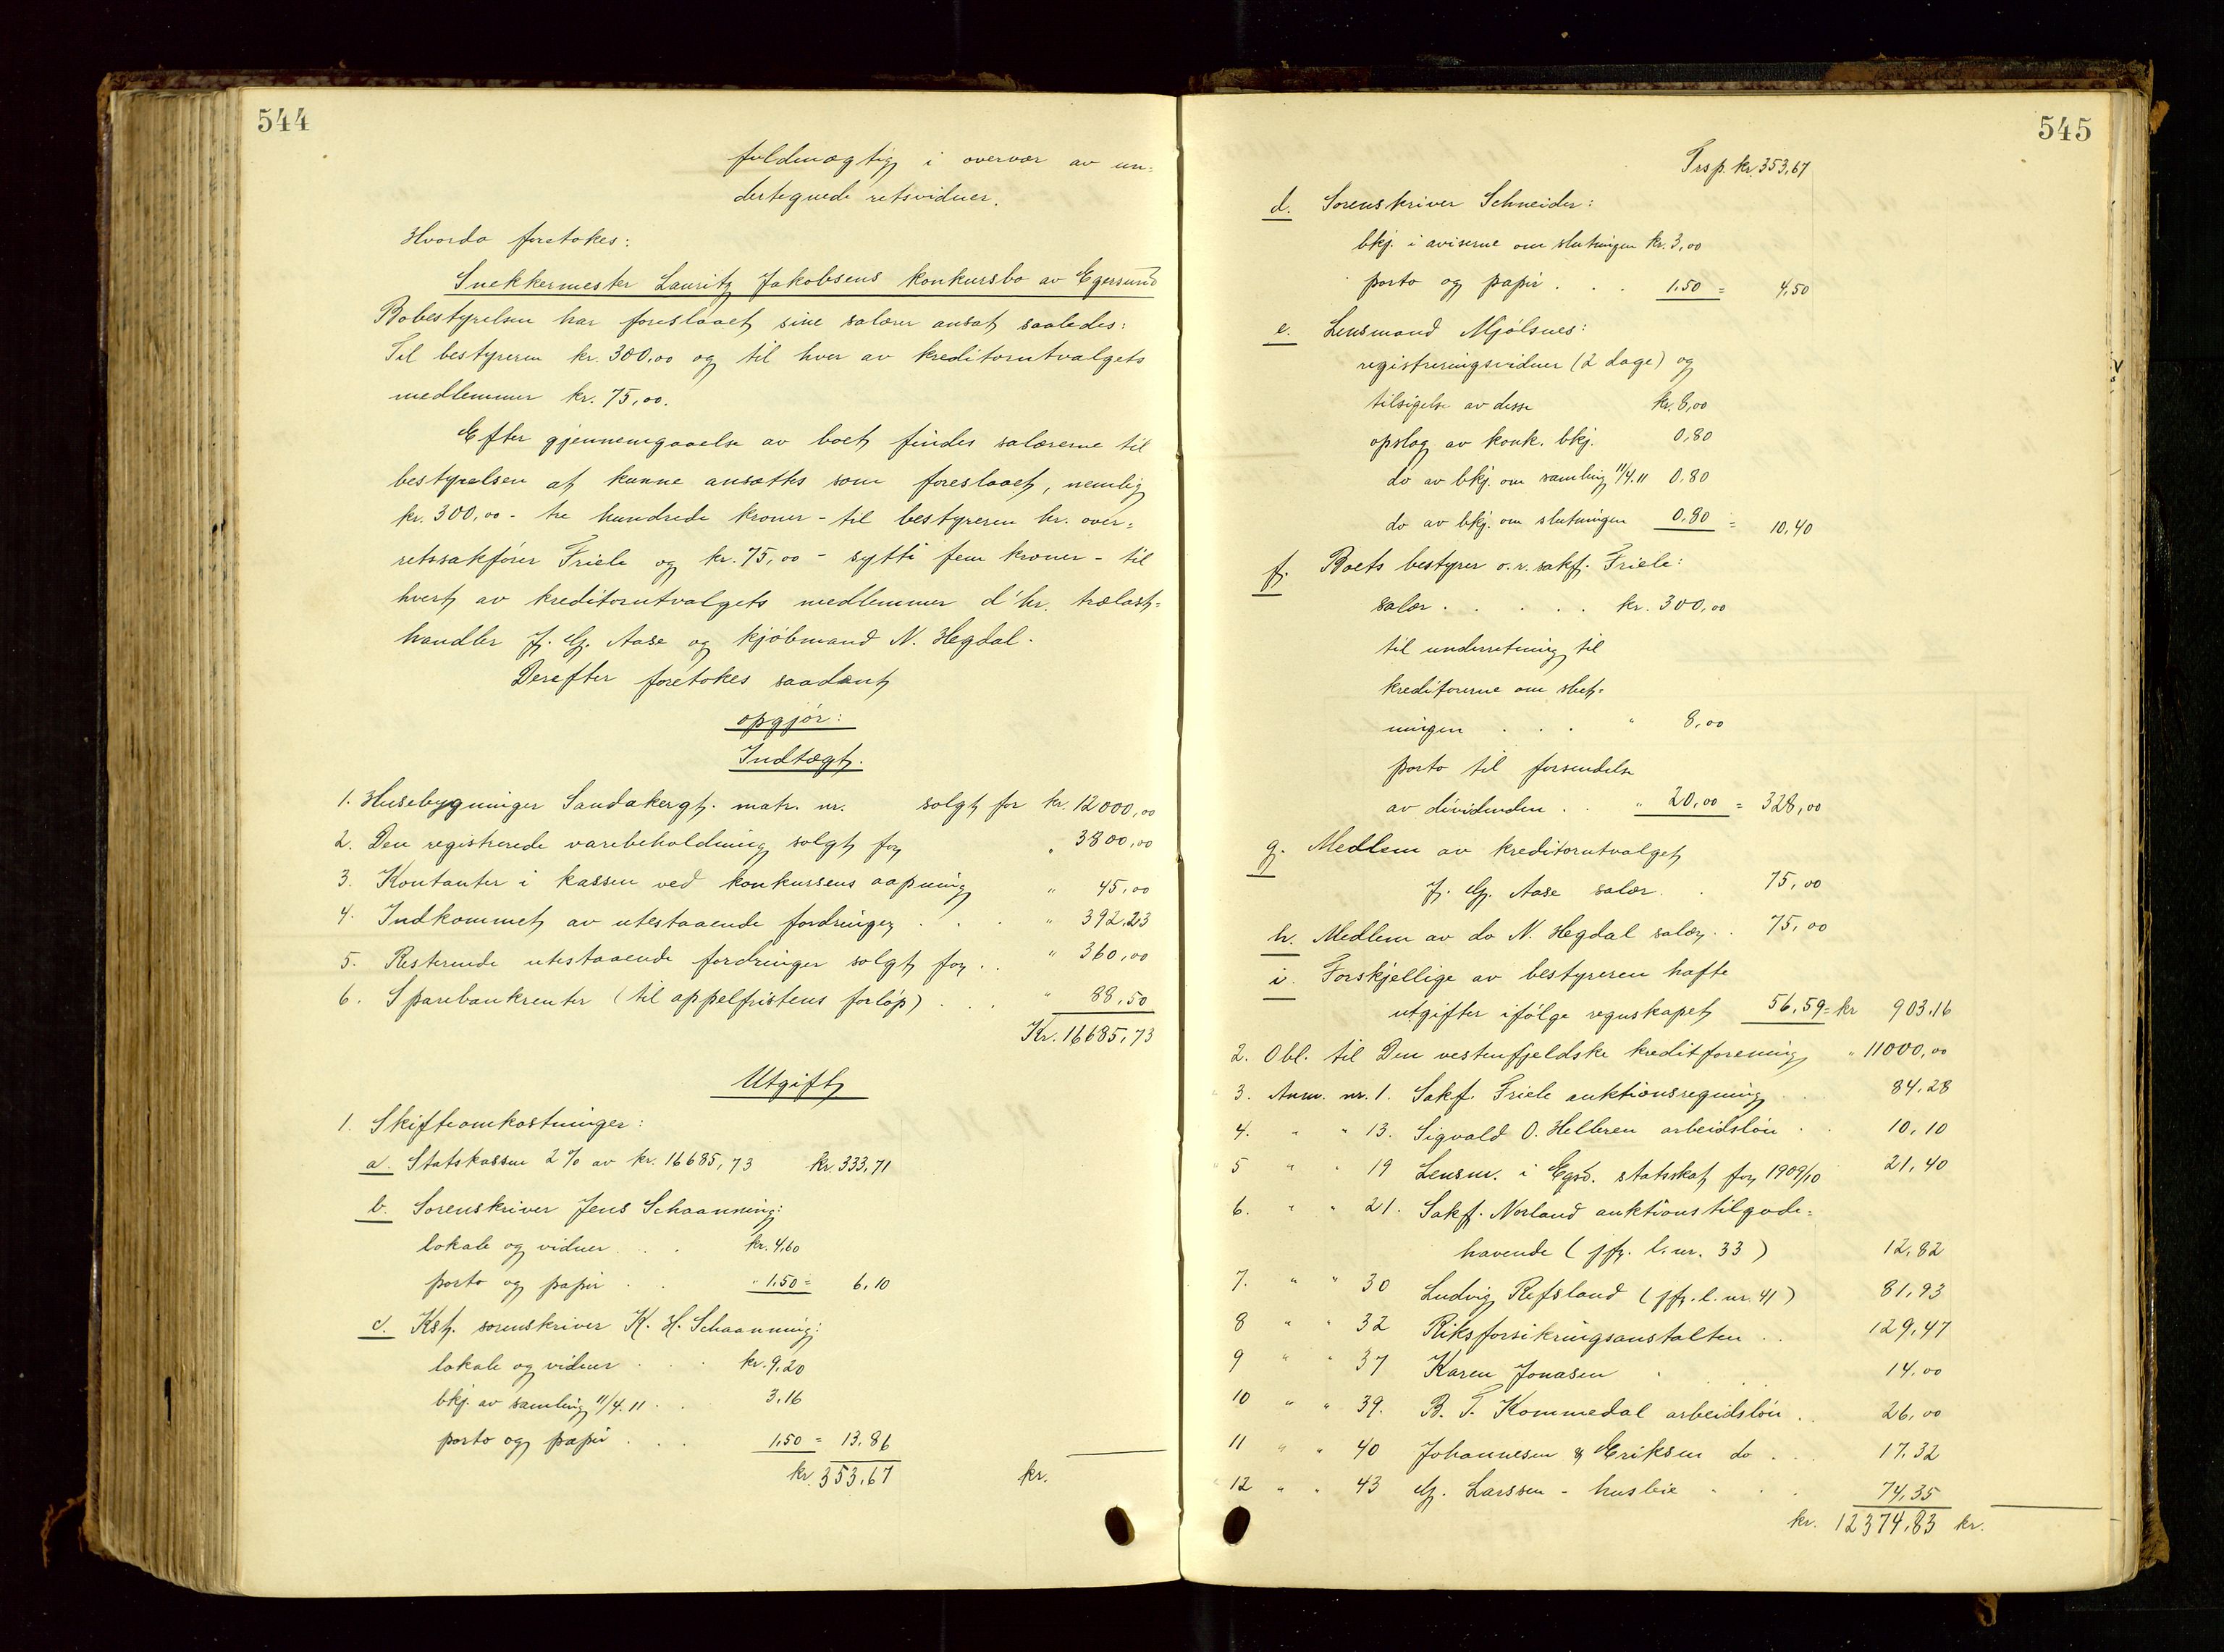 544
fuldmægtig i overvær av un-
dertegnede retsvidner.
Hvorda foretokes:
Snekkermester Lauritz Jakobsens konkursbo av Egersund
Bobestyrelsen har foreslaaet sine salærer ansat saaledes:
Til bestyreren kr. 300,00 og til hver av kreditorutvalgets
medlemmer kr. 75,00.
Efter gjennemgaaelse av boet findes salærerne til
bestyrelsen at kunne ansættes som foreslaaet, nemlig
kr. 300,00 - tre hundrede kroner - til bestyreren hr. over-
retssakfører Friele og kr. 75,00 - sytti fem kroner - til
hvert av kreditorutvalgets medlemmer d'hr. trælast-
handler J. G. Aase og kjøbmand N. Hegdal.
Derefter foretokes saadant
opgjør:
Indtægt.
1. Husebygninger Sandakergt. matr. nr. solgt for kr. 12000,00
2. Den registrerede varebeholdning solgt for " 3800,00
3. Kontanter i kassen ved konkursens aapning " 45,00
4. Indkommet av utestaaende fordringer . . . " 392,23
5. Resterende utestaaende fordringer solgt for . . " 360,00
6. Sparebankrenter (til appelfristens forløp) . . . " 88,50
Kr. 16685,73
Utgift
1. Skifteomkostninger:
a. Statskassen 2% av kr. 16685,73 kr. 333,71
b. Sorenskriver Jens Schaanning:
lokale og vidner . . . kr. 4,60
porto og papir . . " 1,50 = 6,10
c. Kst. sorenskriver K. H. Schaanning:
lokale og vidner . . . kr. 9,20
bkj. av samling 11/4.11 . . 3,16
porto og papir . . . 1,50 = 13,86
kr. 353,67 kr.
545
Trsp. kr. 353,67
d. Sorenskriver Schneider:
bkj. i aviserne om slutningen kr. 3,00
porto og papir . . . 1,50 = 4,50
e. Lensmand Mjølsnes:
registreringsvidner (2 dage) og
tilsigelse av disse kr. 8,00
opslag av konk. bkj. 0,80
do av bkj. om samling 11/4.11 0,80
do av bkj. om slutningen 0,80 = 10,40
f. Boets bestyrer o.r.sakf. Friele:
salær . . . . . kr. 300,00
til underretning til
kreditorerne om slut-
ningen . . . " 8,00
porto til forsendelse
av dividenden . . " 20,00 = 328,00
g. Medlem av kreditorutvalget
J. G. Aase salær . . 75,00
h. Medlem av do N. Hegdal salær . . 75,00
i. Forskjellige av bestyreren hafte
utgifter ifølge regnskapet 56,59 = kr 903,16
2. Obl. til Den vestenfjeldske kreditforening " 11000,00
3. Anm. nr. 1. Sakf. Friele auktionsregning . . 84,28
4. " " 13. Sigvald O. Helleren arbeidsløn . . 10,10
5 " " 19 Lensm. i Egsd. statsskat for 1909/10 21,40
6. " " 21. Sakf. Norland auktionstilgode-
havende (jfr. l. nr. 33) 12,82
7. " " 30 Ludvig Refsland (jfr. l. nr. 41) 81,93
8 " " 32 Riksforsikringsanstalten . . 129,47
9 " " 37 Karen Jonasen . . . 14,00
10 " " 39. B. T. Kommedal arbeidsløn . . 26,00
11 " " 40 Johannesen & Eriksen do . . . 17,32
12 " " 43 G. Larssen - husleie . . . 74,35
kr. 12374,83 kr.